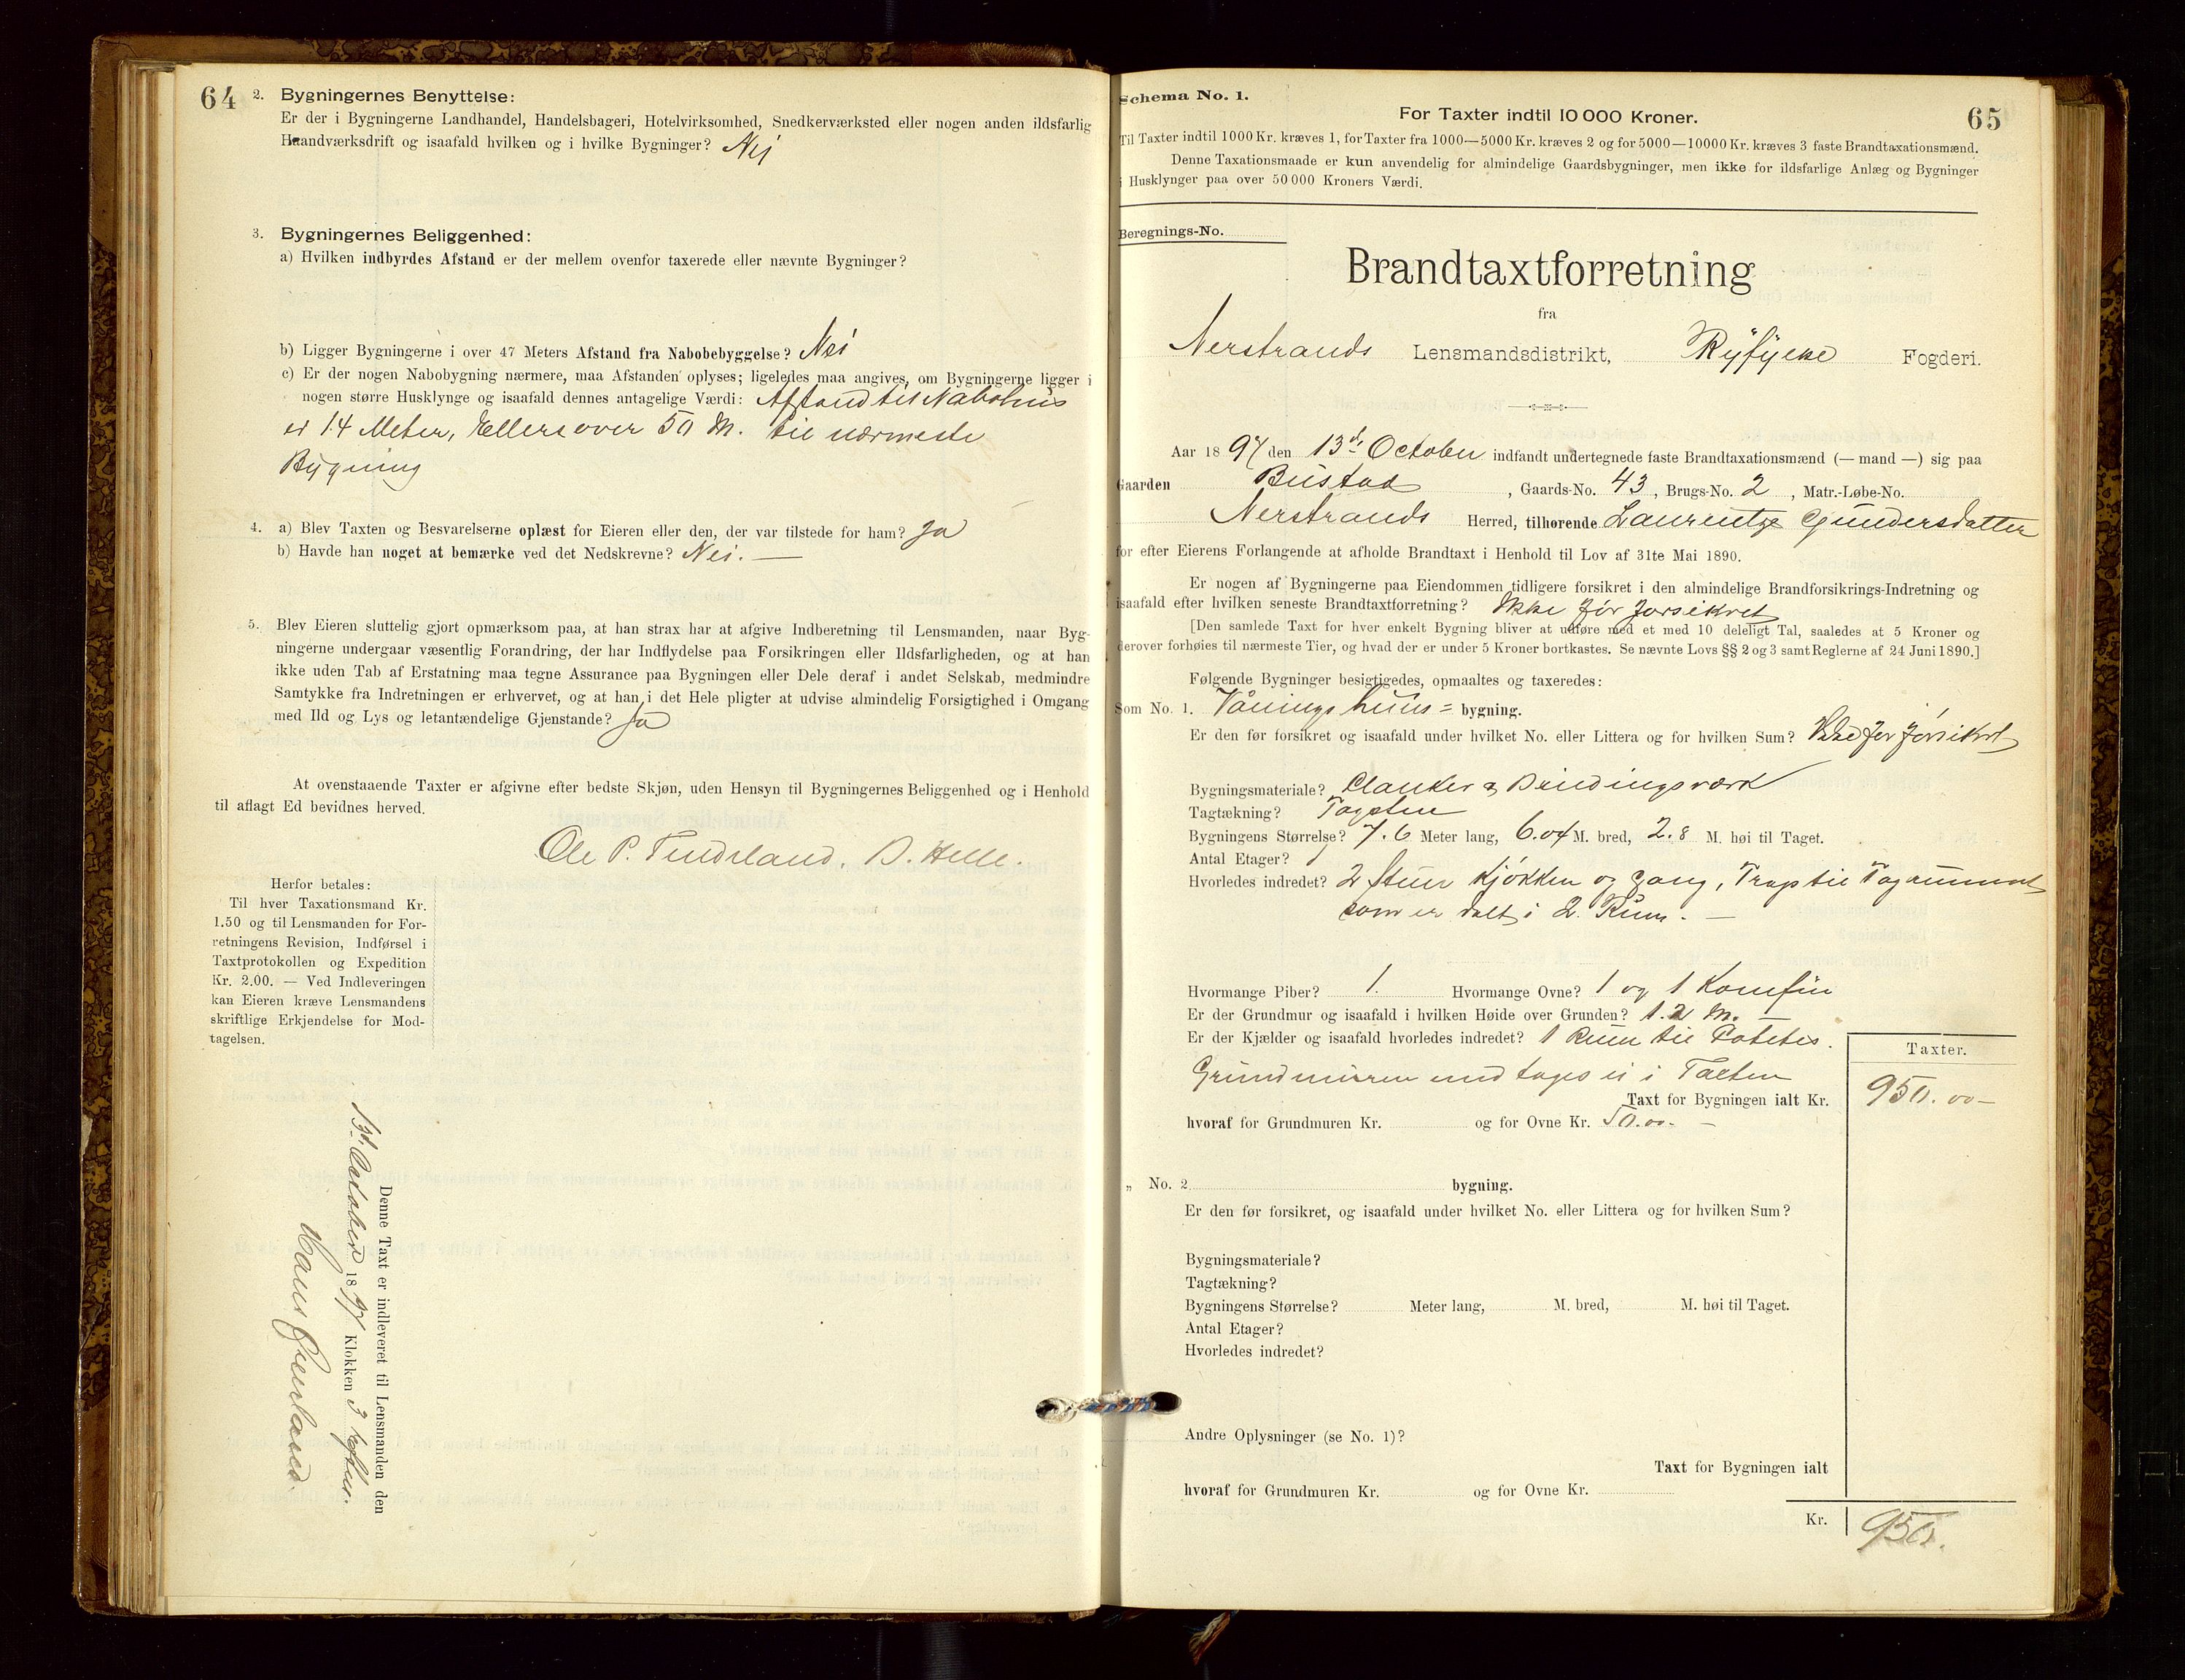 64
2. Bygningernes Benyttelse:
Er der i Bygningerne Landhandel, Handelsbageri, Hotelvirksomhed, Snedkerværksted eller nogen anden ildsfarlig
Haandværksdrift og isaafald hvilken og i hvilke Bygninger? Nei
3. Bygningernes Beliggenhed:
a) Hvilken indbyrdes Afstand er der mellem ovenfor taxerede eller nævnte Bygninger?
b) Ligger Bygningerne i over 47 Meters Afstand fra Nabobebyggelse? Nei
c) Er der nogen Nabobygning nærmere, maa Afstanden oplyses; ligeledes maa angives, om Bygningerne ligger i
nogen større Husklynge og isaafald dennes antagelige Værdi: Afstand til Nabohus
er 14 Meter, Ellers over 50 M. til nærmeste
Bygning
4. a) Blev Taxten og Besvarelserne oplæst for Eieren eller den, der var tilstede for ham? Ja
b) Havde han noget at bemærke ved det Nedskrevne? Nei. —
5. Blev Eieren sluttelig gjort opmærksom paa, at han strax har at afgive Indberetning til Lensmanden, naar Byg-
ningerne undergaar væsentlig Forandring, der har Indflydelse paa Forsikringen eller Ildsfarligheden, og at han
ikke uden Tab af Erstatning maa tegne Assurance paa Bygningen eller Dele deraf i andet Selskab, medmindre
Samtykke fra Indretningen er erhvervet, og at han i det Hele pligter at udvise almindelig Forsigtighed i Omgang
med Ild og Lys og letantændelige Gjenstande? Ja
At ovenstaaende Taxter er afgivne efter bedste Skjøn, uden Hensyn til Bygningernes Beliggenhed og i Henhold
til aflagt Ed bevidnes herved.
Ole P. Tindeland. D. Helle.
Herfor betales:
Til hver Taxationsmand Kr.
1.50 og til Lensmanden for For-
retningens Revision, Indførsel i
Taxtprotokollen og Expedition
Kr. 2.00. — Ved Indleveringen
kan Eieren kræve Lensmandens
skriftlige Erkjendelse for Mod-
tagelsen.
Denne Taxt er indleveret til Lensmanden den
October 1897 Klokken 3
Schema No. 1.
65
For Taxter indtil 10 000 Kroner.
Til Taxter indtil 1000 Kr. kræves 1, for Taxter fra 1000—5000 Kr. kræves 2 og for 5000—10000 Kr. kræves 3 faste Brandtaxationsmænd.
Denne Taxationsmaade er kun anvendelig for almindelige Gaardsbygninger, men ikke for ildsfarlige Anlæg og Bygninger
i Husklynger paa over 50 000 Kroners Værdi.
Beregnings-No.
Brandtaxtforretning
fra
Nerstrands Lensmandsdistrikt, Ryfylke Fogderi.
Aar 1897 den 13d October indfandt undertegnede faste Brandtaxationsmænd (— mand —) sig paa
Gaarden Bustad, Gaards-No. 43, Brugs-No. 2, Matr.-Løbe-No.
Nerstrands Herred, tilhørende Laurentze Gundersdatter
for efter Eierens Forlangende at afholde Brandtaxt i Henhold til Lov af 31te Mai 1890.
Er nogen af Bygningerne paa Eiendommen tidligere forsikret i den almindelige Brandforsikrings-Indretning og
isaafald efter hvilken seneste Brandtaxtforretning? Ikke før forsikret
[Den samlede Taxt for hver enkelt Bygning bliver at udføre med et med 10 deleligt Tal, saaledes at 5 Kroner og
derover forhøies til nærmeste Tier, og hvad der er under 5 Kroner bortkastes. Se nævnte Lovs §§ 2 og 3 samt Reglerne af 24 Juni 1890.]
Følgende Bygninger besigtigedes, opmaaltes og taxeredes:
Som No. 1. Vånings huus= bygning.
Er den før forsikret og isaafald under hvilket No. eller Littera og for hvilken Sum? Ikke før forsikret
Bygningsmateriale? Planker & Bindingsværk
Tagtækning? Tagsten
Bygningens Størrelse? 7.6 Meter lang, 6.04 M. bred, 2.8 M. høi til Taget.
Antal Etager? 1
Hvorledes indredet? 2 Stuer Kjøkken og gang, Trap til Tagrummet
som er delt i 2 Rum. —
Hvormange Piber? 1. Hvormange Ovne? 1 og 1 Komfur
Er der Grundmur og isaafald i hvilken Høide over Grunden? 1.2 M. —
Er der Kjælder og isaafald hvorledes indredet? 1 Rum til Potetes.
Grundmuren medtages ei i Taxten
Taxter.
Taxt for Bygningen ialt Kr. 950.00 —
hvoraf for Grundmuren Kr. og for Ovne Kr. 50.00. —
„ No. 2 bygning.
Er den før forsikret, og isaafald under hvilket No. eller Littera og for hvilken Sum?
Bygningsmateriale?
Tagtækning?
Bygningens Størrelse? Meter lang, M. bred, M. høi til Taget.
Antal Etager?
Hvorledes indredet?
Andre Oplysninger (se No. 1)?
Taxt for Bygningen ialt
hvoraf for Grundmuren Kr. og for Ovne Kr.
Kr. 950.